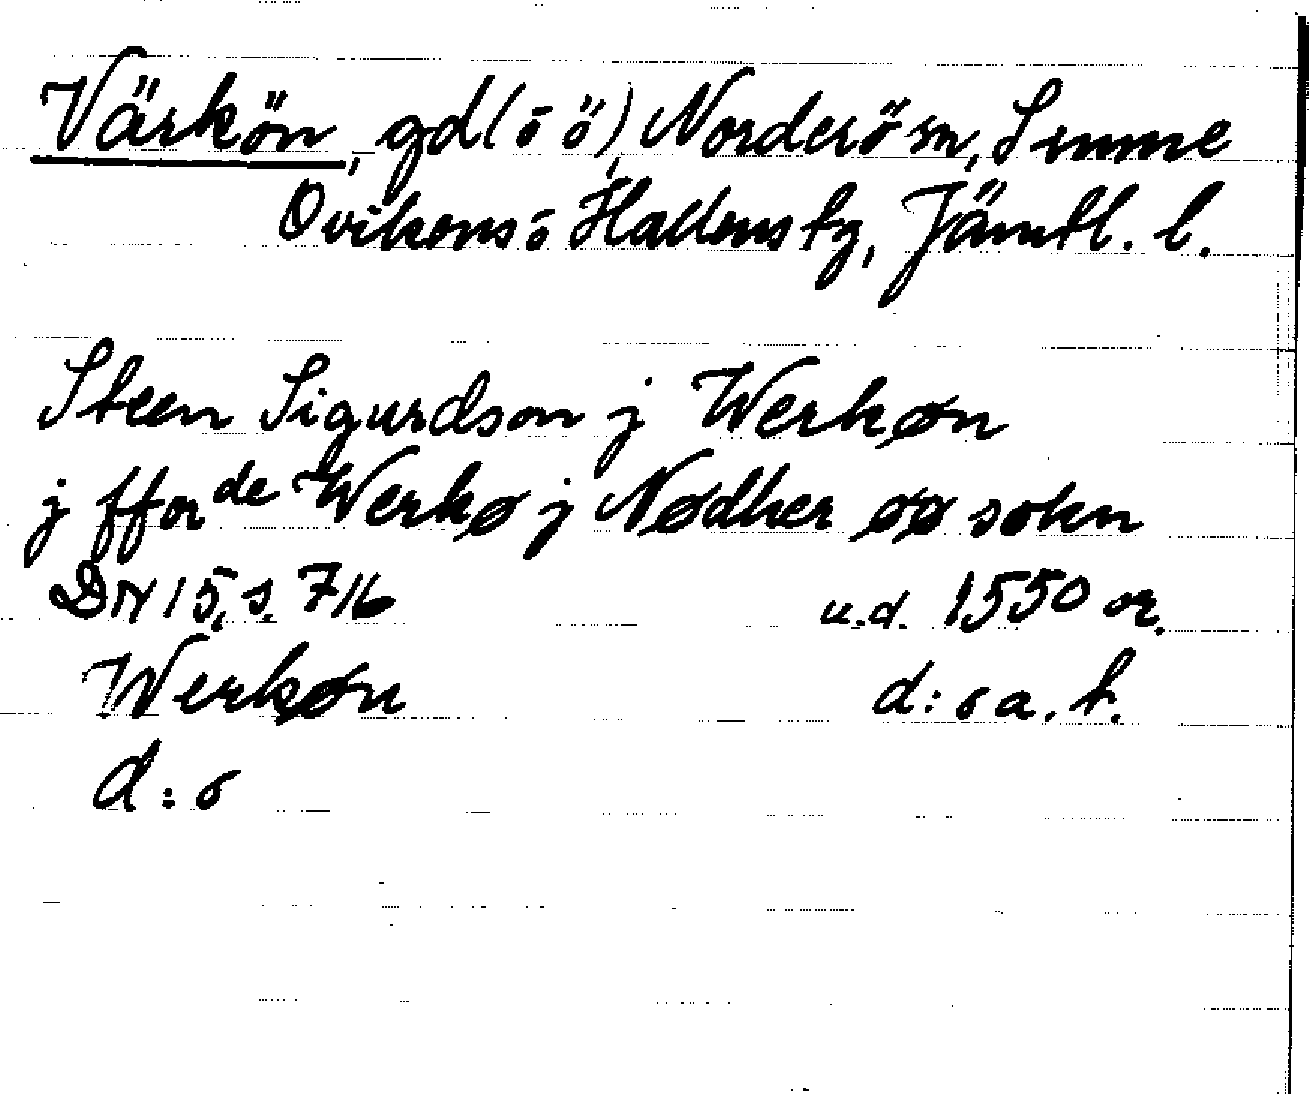 Värkön, gd (o ö), Norderö sn, Sunne
Ovikens o Hallens tg, Jämtl. l.
Steen Sigurdson j Werkøn
j fforde Werkø j Nødher øø sokn
DN 15, s. 716 u.d. 1550 or.
Werkøn d:o a. t.
d:o